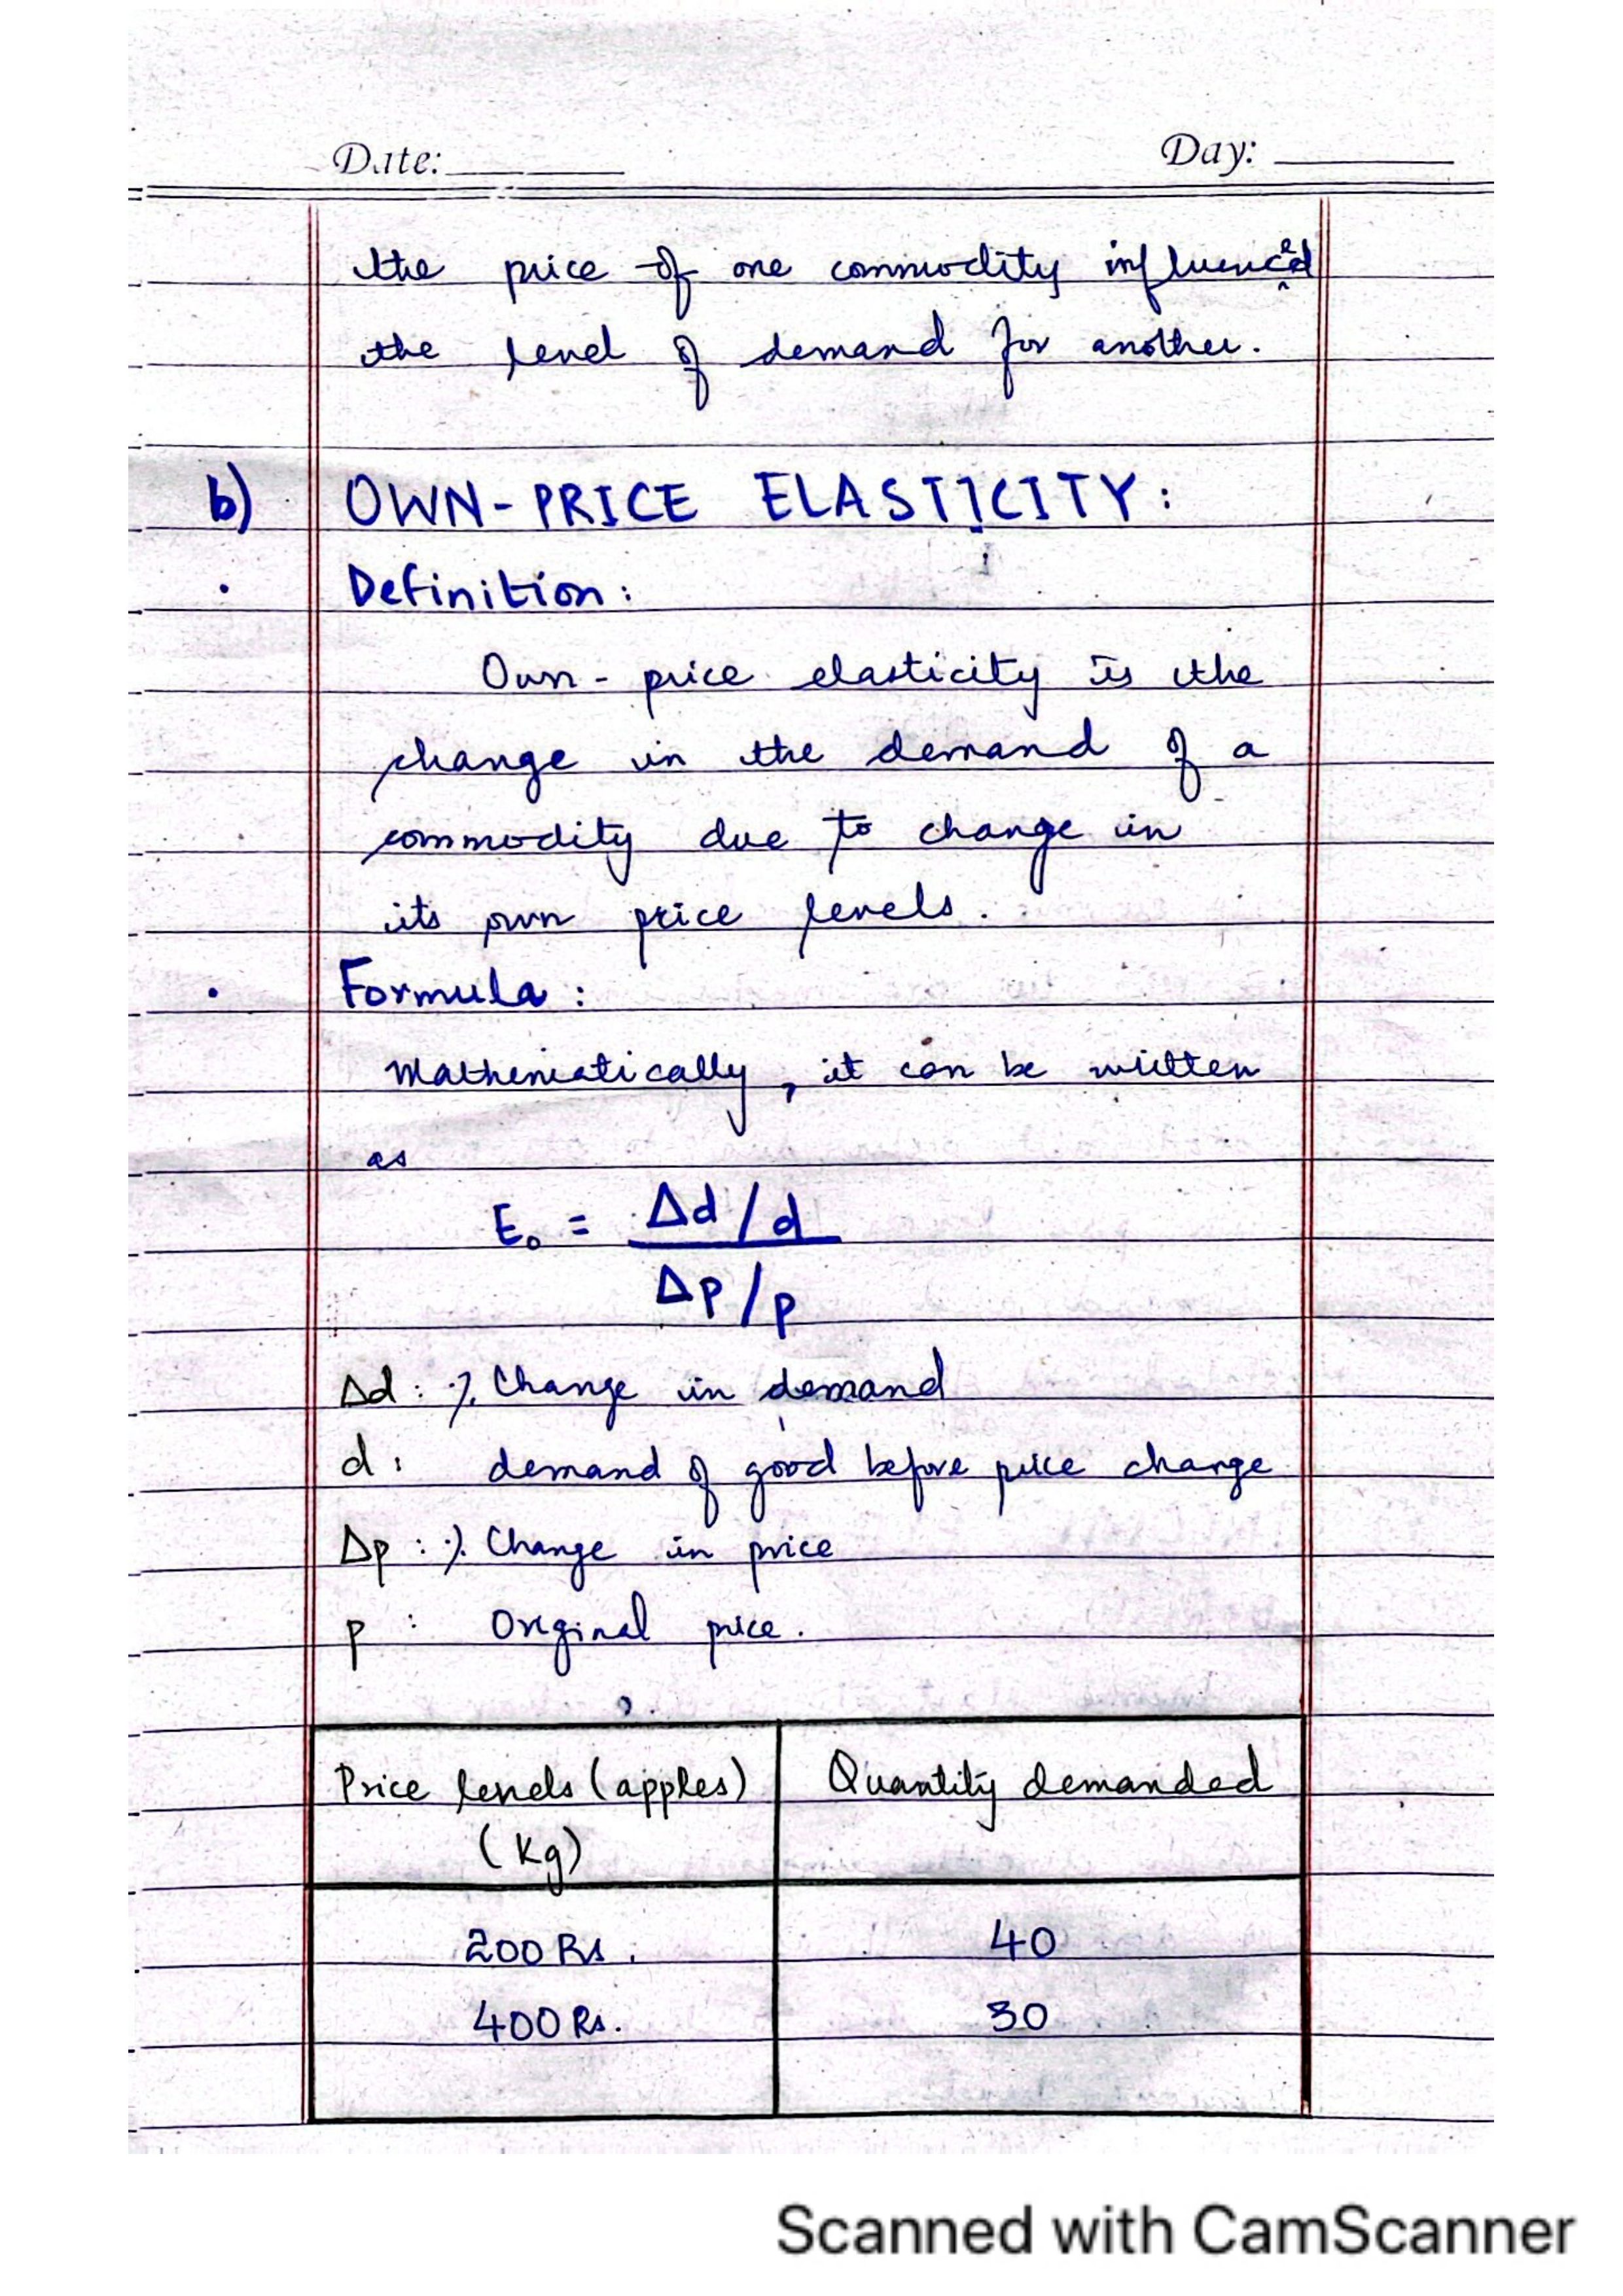 Date: Day:
the price of one commodity influenced
the level of demand for another.
b) OWN-PRICE ELASTICITY:
. Definition:
Own-price elasticity is the
change in the demand of a
commodity due to change in
its own price levels.
. Formula:
Mathematically, it can be written
as
E₀ = Δd/d
Δp/p
Δd: % Change in demand
d: demand of good before price change
Δp: % Change in price
p: Original price.
Price levels (apples) Quantity demanded
(Kg)
200 Rs. 40
400 Rs. 30
Scanned with CamScanner